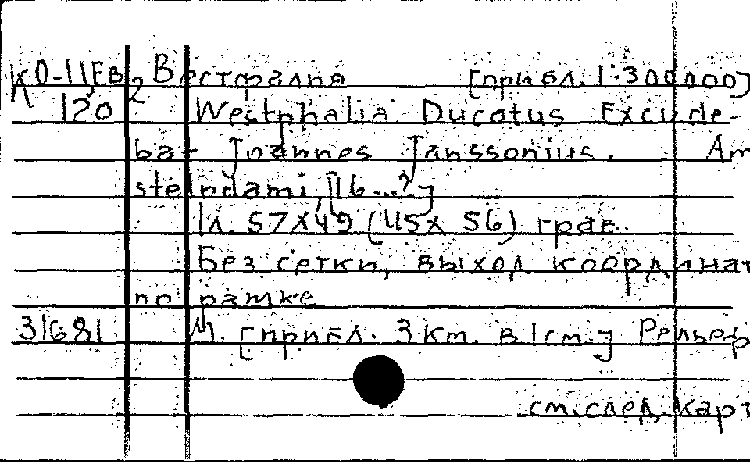 К 0-11,Ев 2 Вестфалия [прибл. 1:300000]
120 Westphalia Ducatus Excude-
bat Joannes Janssonius. Am
stelodami, [16...?]
1 л. 57X49 (45X 56) грав.
Без сетки, выход координат
по рамке
31681 М. [прибл. 3км. в 1см.] Рельеф
см.след.карт